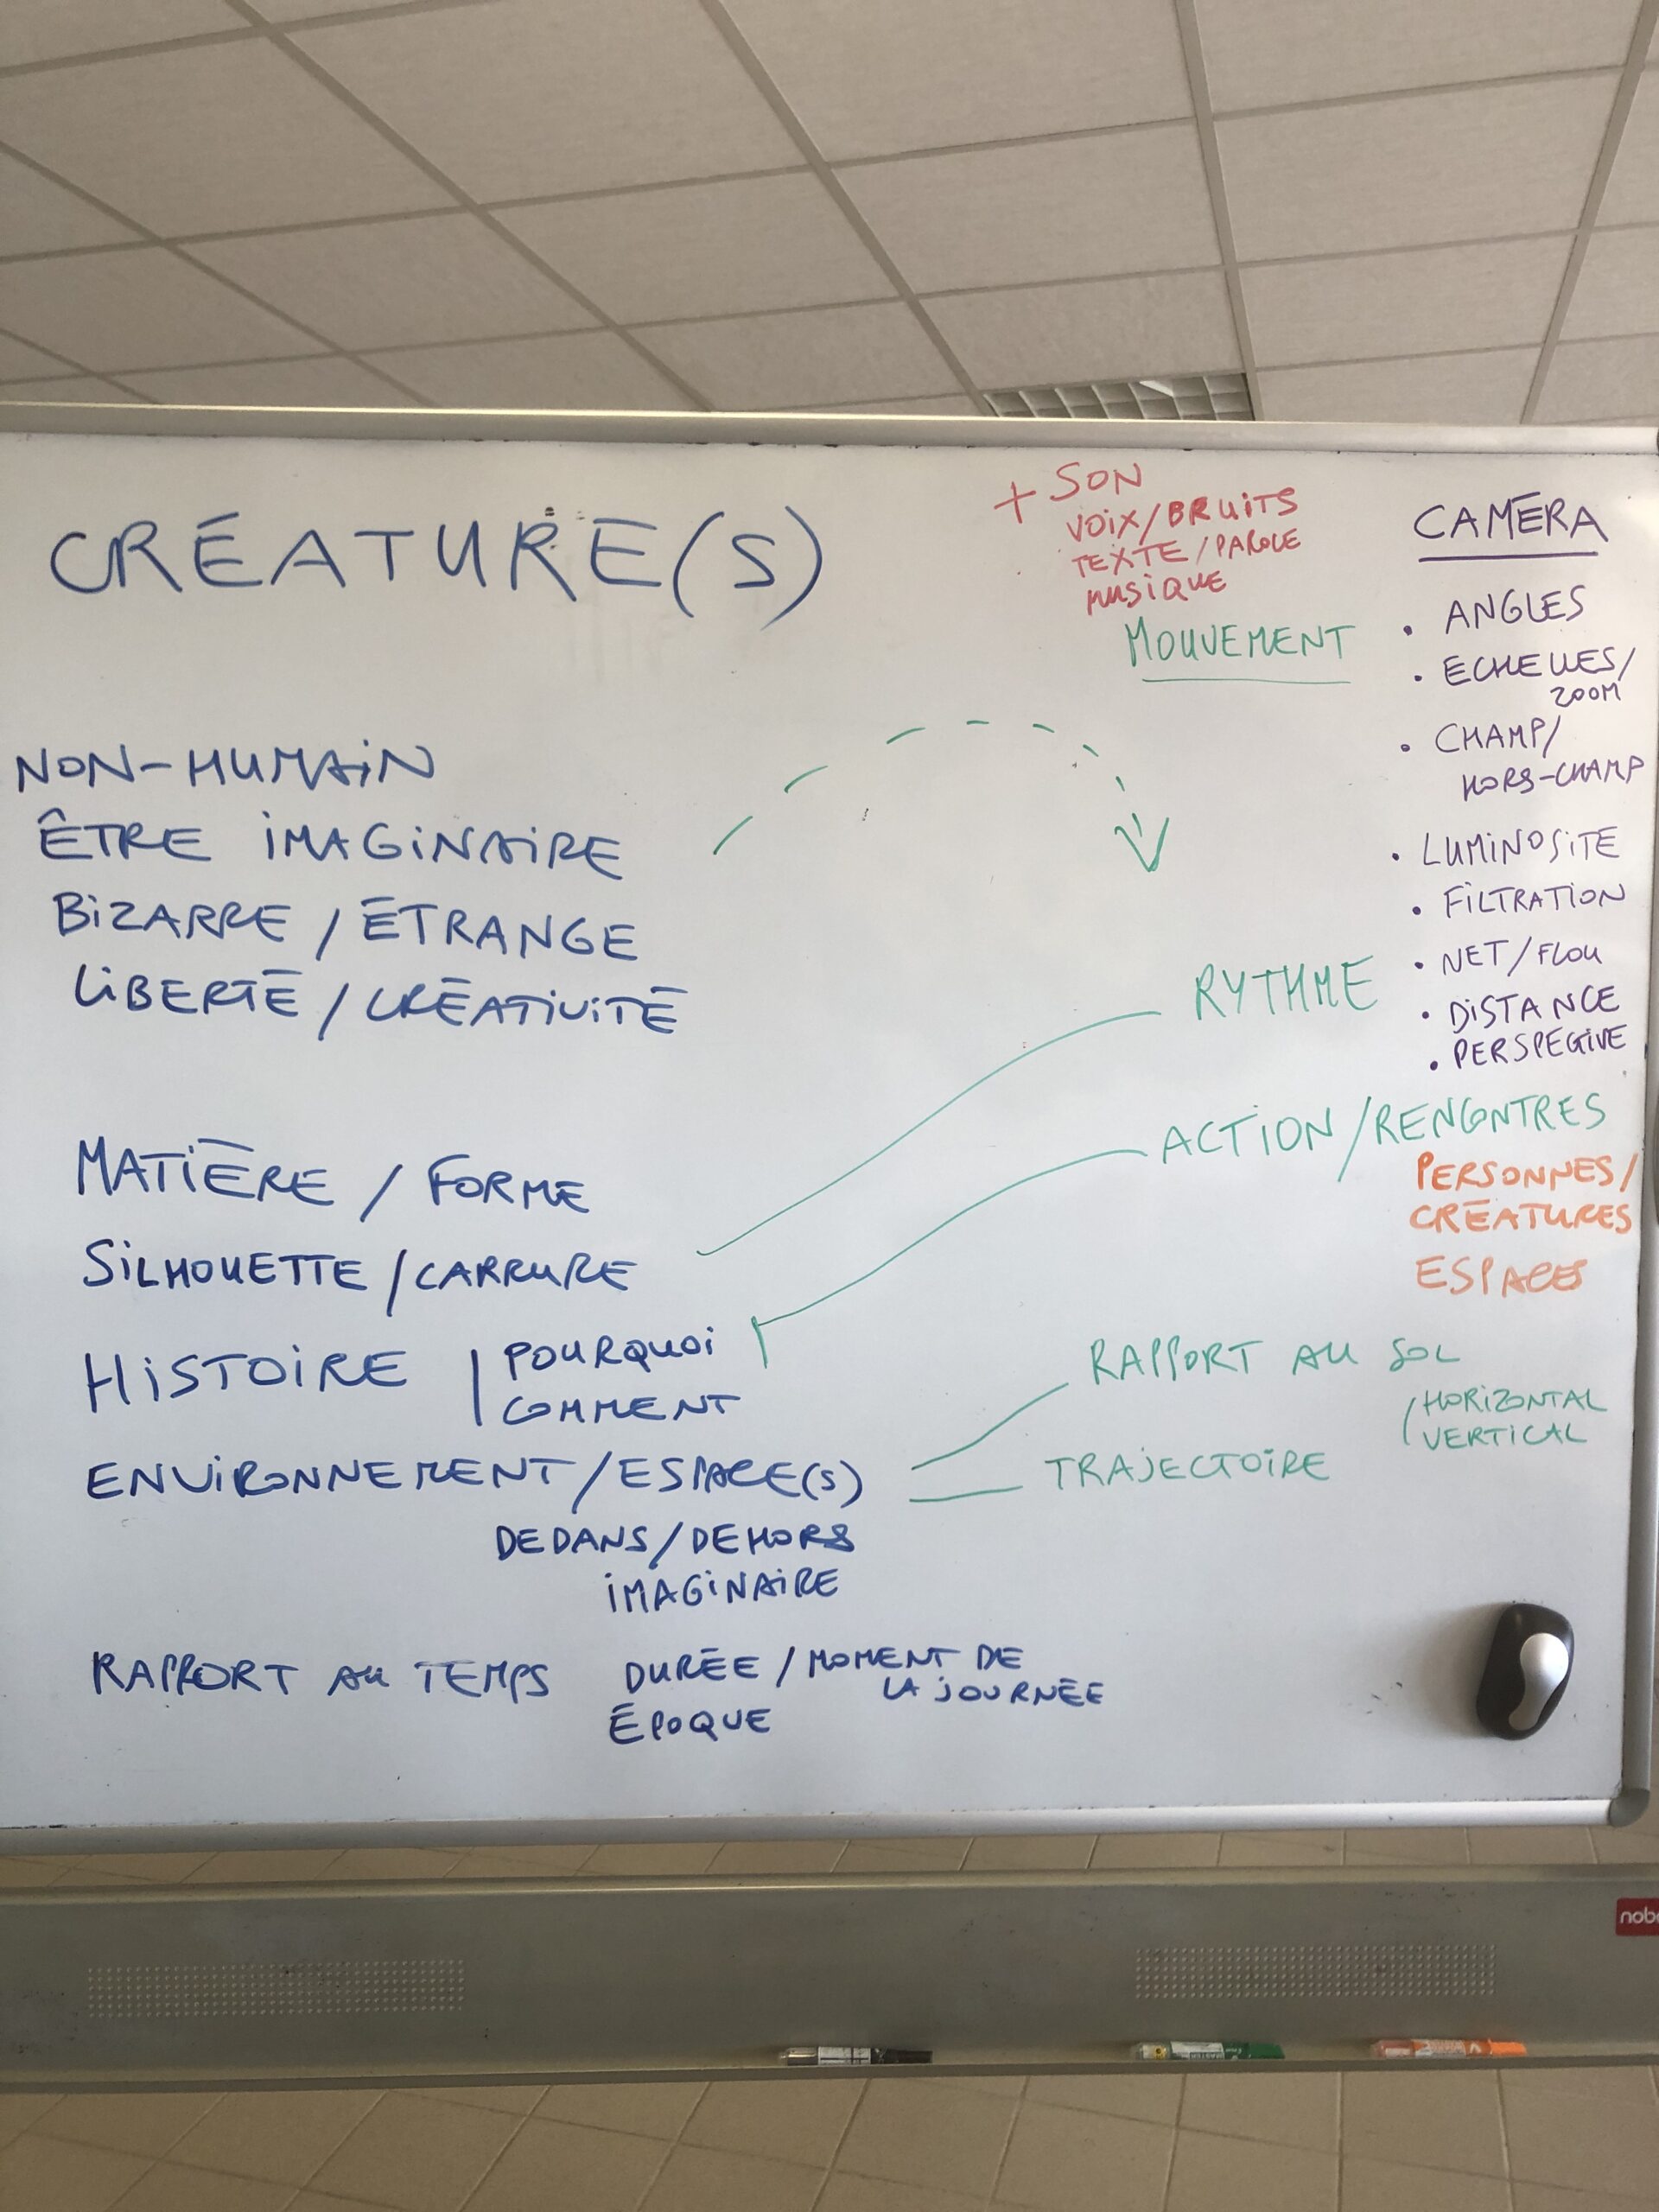 CRÉATURE(S)
NON-HUMAIN
ÊTRE IMAGINAIRE
BIZARRE / ÉTRANGE
LIBERTÉ / CRÉATIVITÉ
MATIÈRE / FORME
SILHOUETTE / CARRURE
HISTOIRE | POURQUOI
COMMENT
ENVIRONNEMENT / ESPACE(S)
DEDANS / DEHORS
IMAGINAIRE
RAPPORT AU TEMPS DURÉE / MOMENT DE
LA JOURNÉE
ÉPOQUE
+ SON
VOIX / BRUITS
TEXTE / PAROLE
MUSIQUE
MOUVEMENT
RYTHME
ACTION / RENCONTRES
PERSONNES /
CRÉATURES
ESPACES
RAPPORT AU SOL
HORIZONTAL
VERTICAL
TRAJECTOIRE
CAMÉRA
• ANGLES
• ECHELLES /
ZOOM
• CHAMP /
HORS-CHAMP
• LUMINOSITE
• FILTRATION
• NET / FLOU
• DISTANCE
• PERSPECTIVE